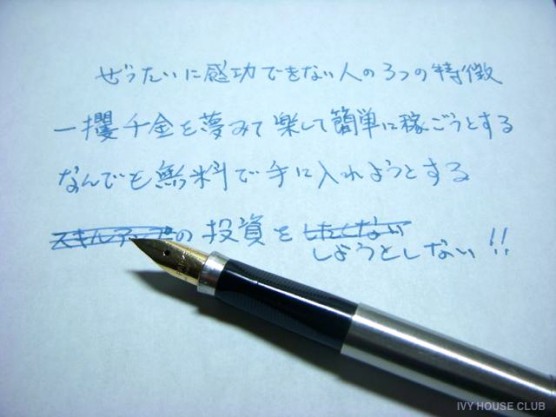 ぜったいに成功できない人の3つの特徴
一攫千金を夢みて楽して簡単に稼ごうとする
なんでも無料で手に入れようとする
スキルアップの投資をしたくない
しようとしない!!
IVY HOUSE CLUB